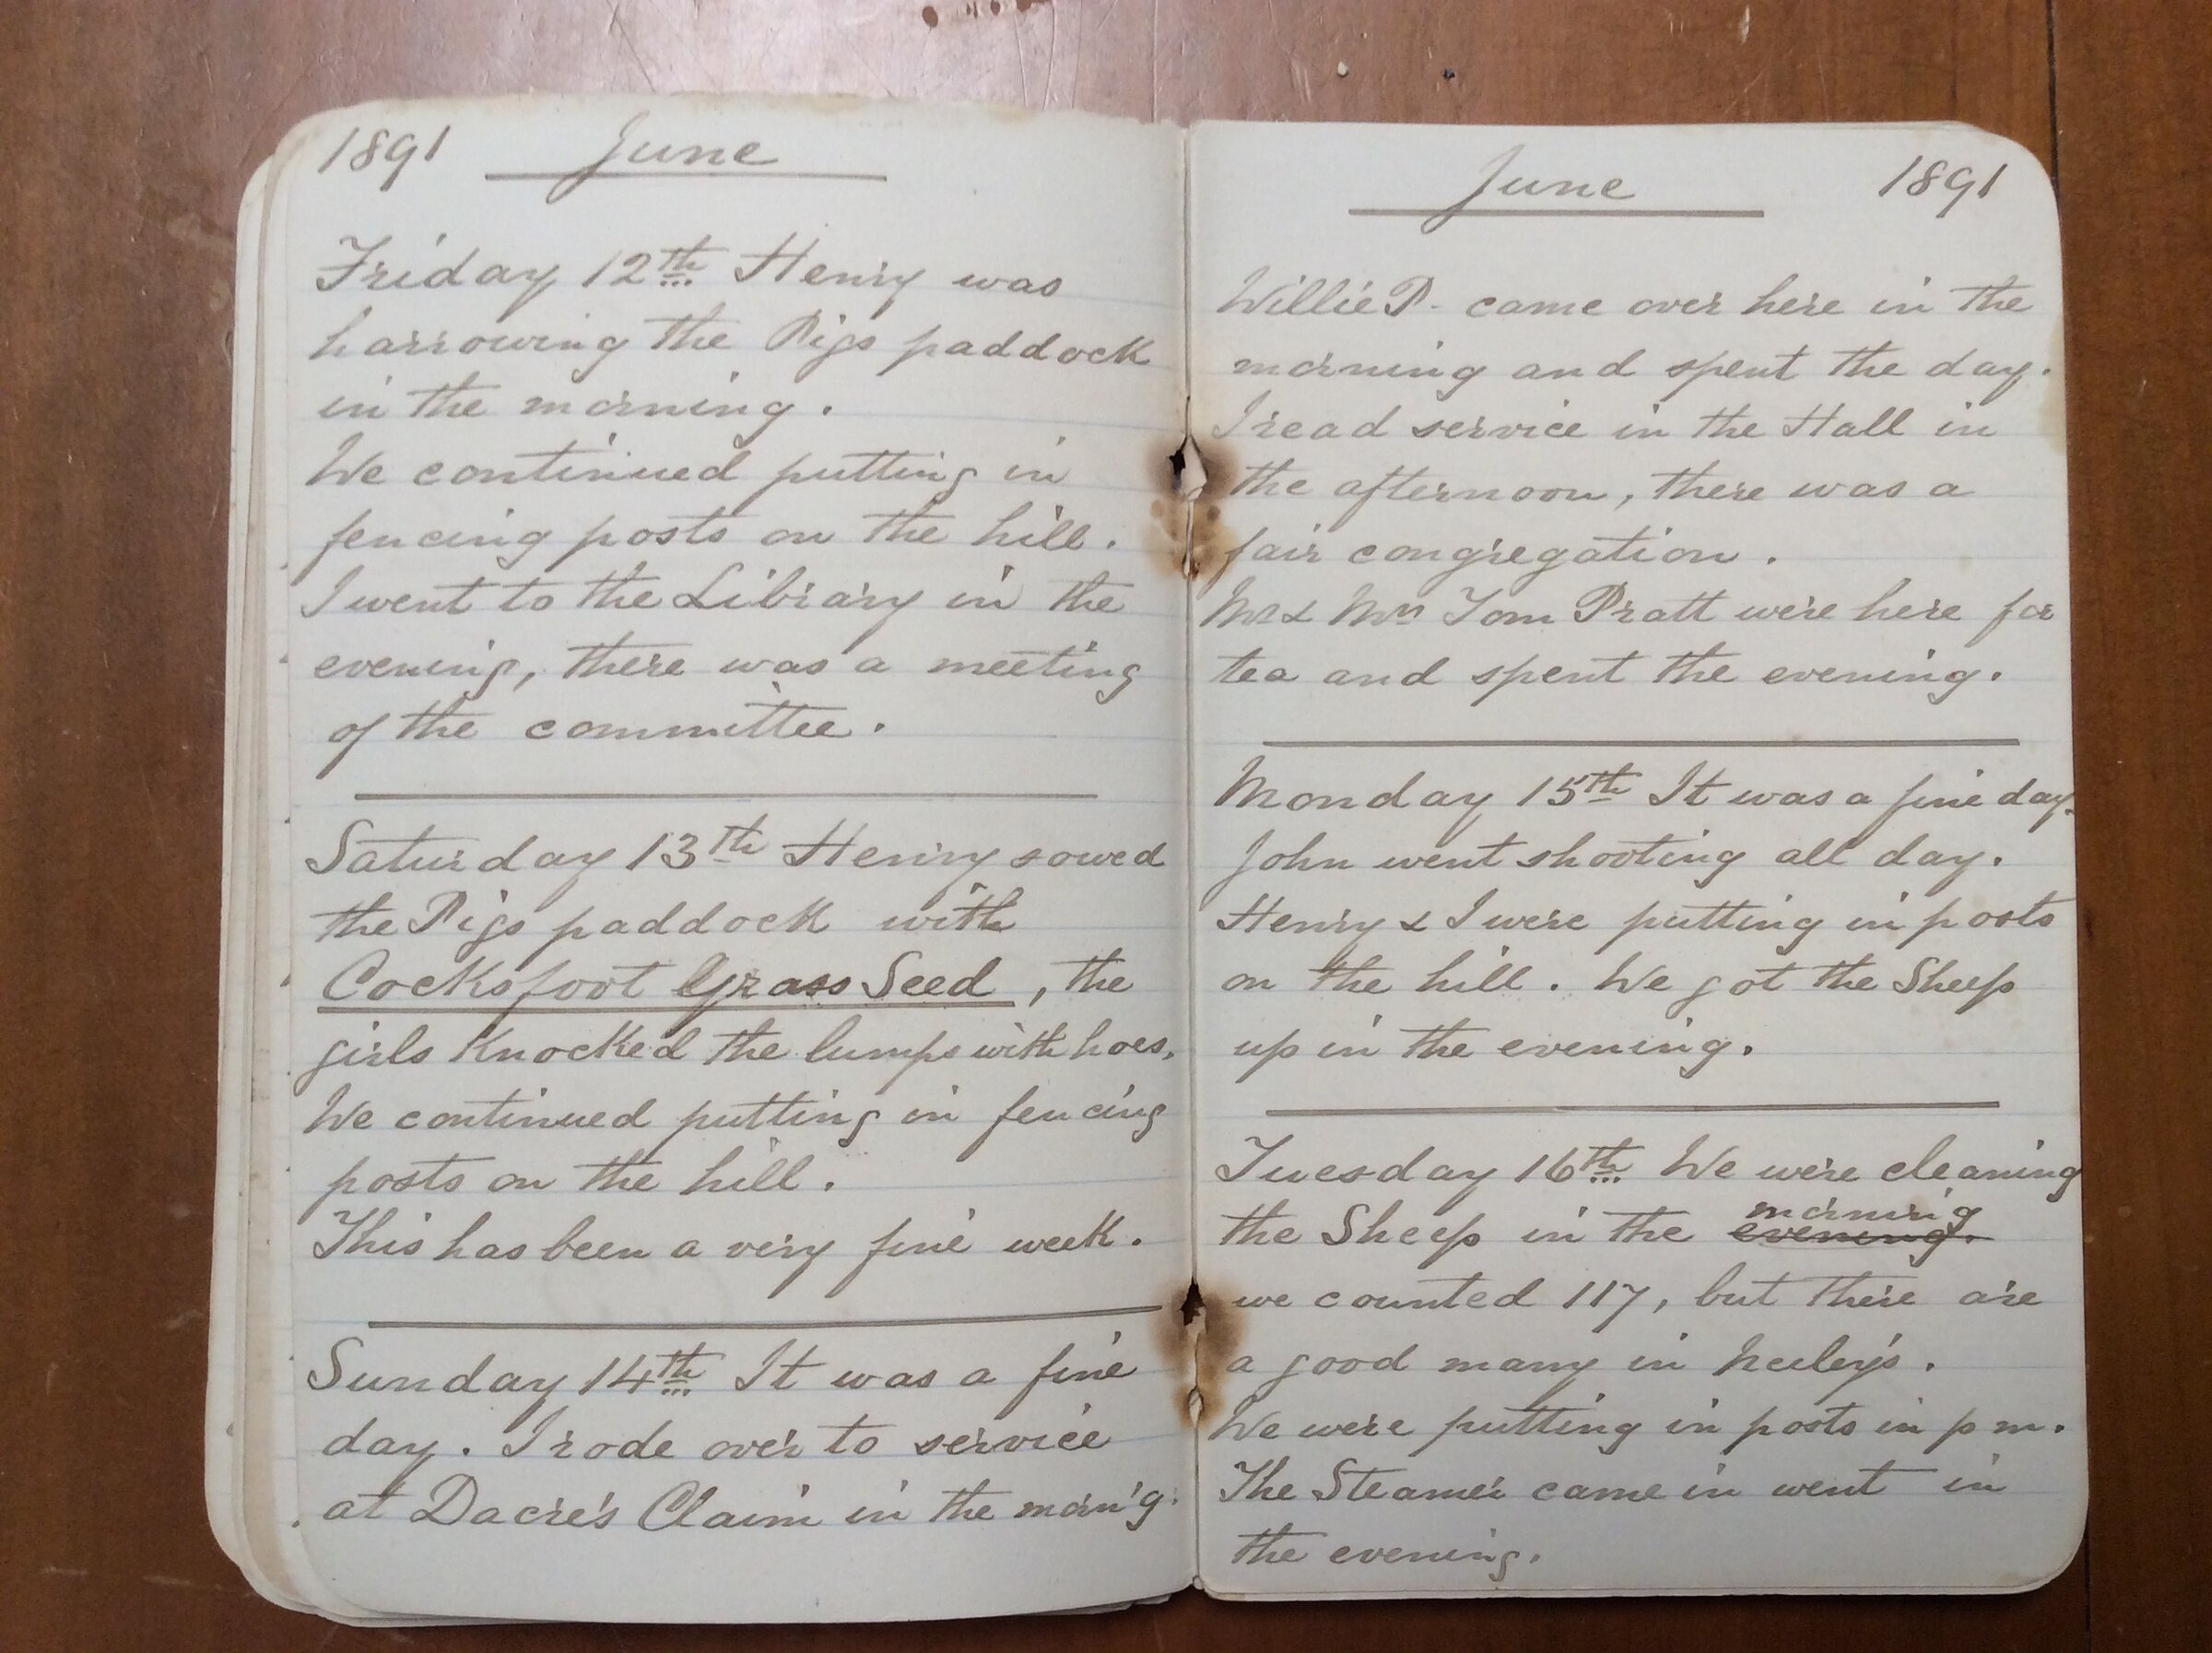 1891 June
Friday 12th Henry was
harrowing the Pigs paddock
in the morning.
We continued putting in
fencing posts on the hill.
I went to the Library in the
evening, there was a meeting
of the committee.
Saturday 13th Henry sowed
the Pigs paddock with
Cocksfoot Grass Seed, the
girls Knocked the lumps with hoes,
We continued putting in fencing
posts on the hill.
This has been a very fine week.
Sunday 14th It was a fine
day. I rode over to service
at Dacre's Claim in the morn'g.
June 1891
Willie P. came over here in the
morning and spent the day.
I read service in the Hall in
the afternoon, there was a
fair congregation.
Mr & Mrs Tom Pratt were here for
tea and spent the evening.
Monday 15th It was a fine day.
John went shooting all day.
Henry & I were putting in posts
on the hill. We got the Sheep
up in the evening.
Tuesday 16th We were cleaning
morning
the Sheep in the evening.
we counted 117, but there are
a good many in
We were putting in posts in p m.
The Steamer came in went in
the evening.